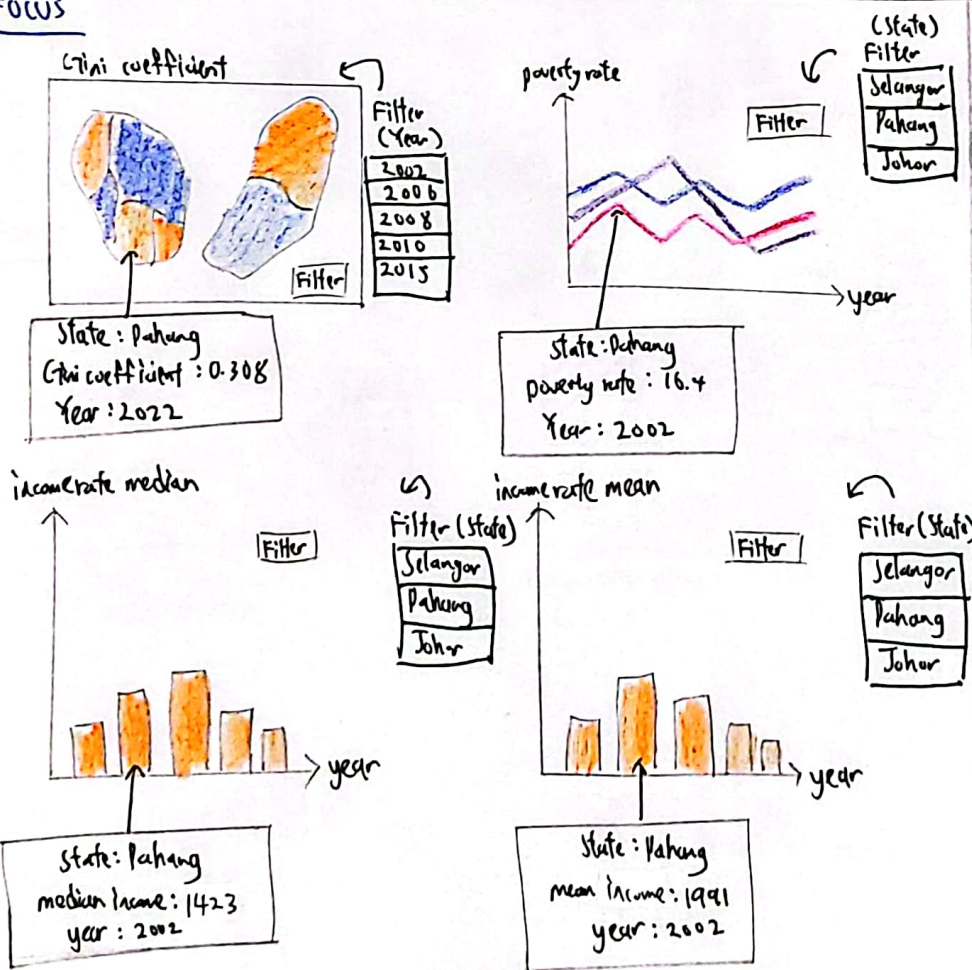 FOCUS
Gini coefficient
Filter
(Year)
2002
2006
2008
2010
2015
Filter
State : Pahang
Gini coefficient : 0.308
Year : 2022
poverty rate
(State)
Filter
Selangor
Pahang
Johor
Filter
year
State : Pahang
poverty rate : 16.4
Year : 2002
income rate median
Filter
Filter (State)
Selangor
Pahang
Johor
year
State : Pahang
median income : 1423
year : 2002
income rate mean
Filter
Filter (State)
Selangor
Pahang
Johor
year
State : Pahang
mean income : 1991
year : 2002